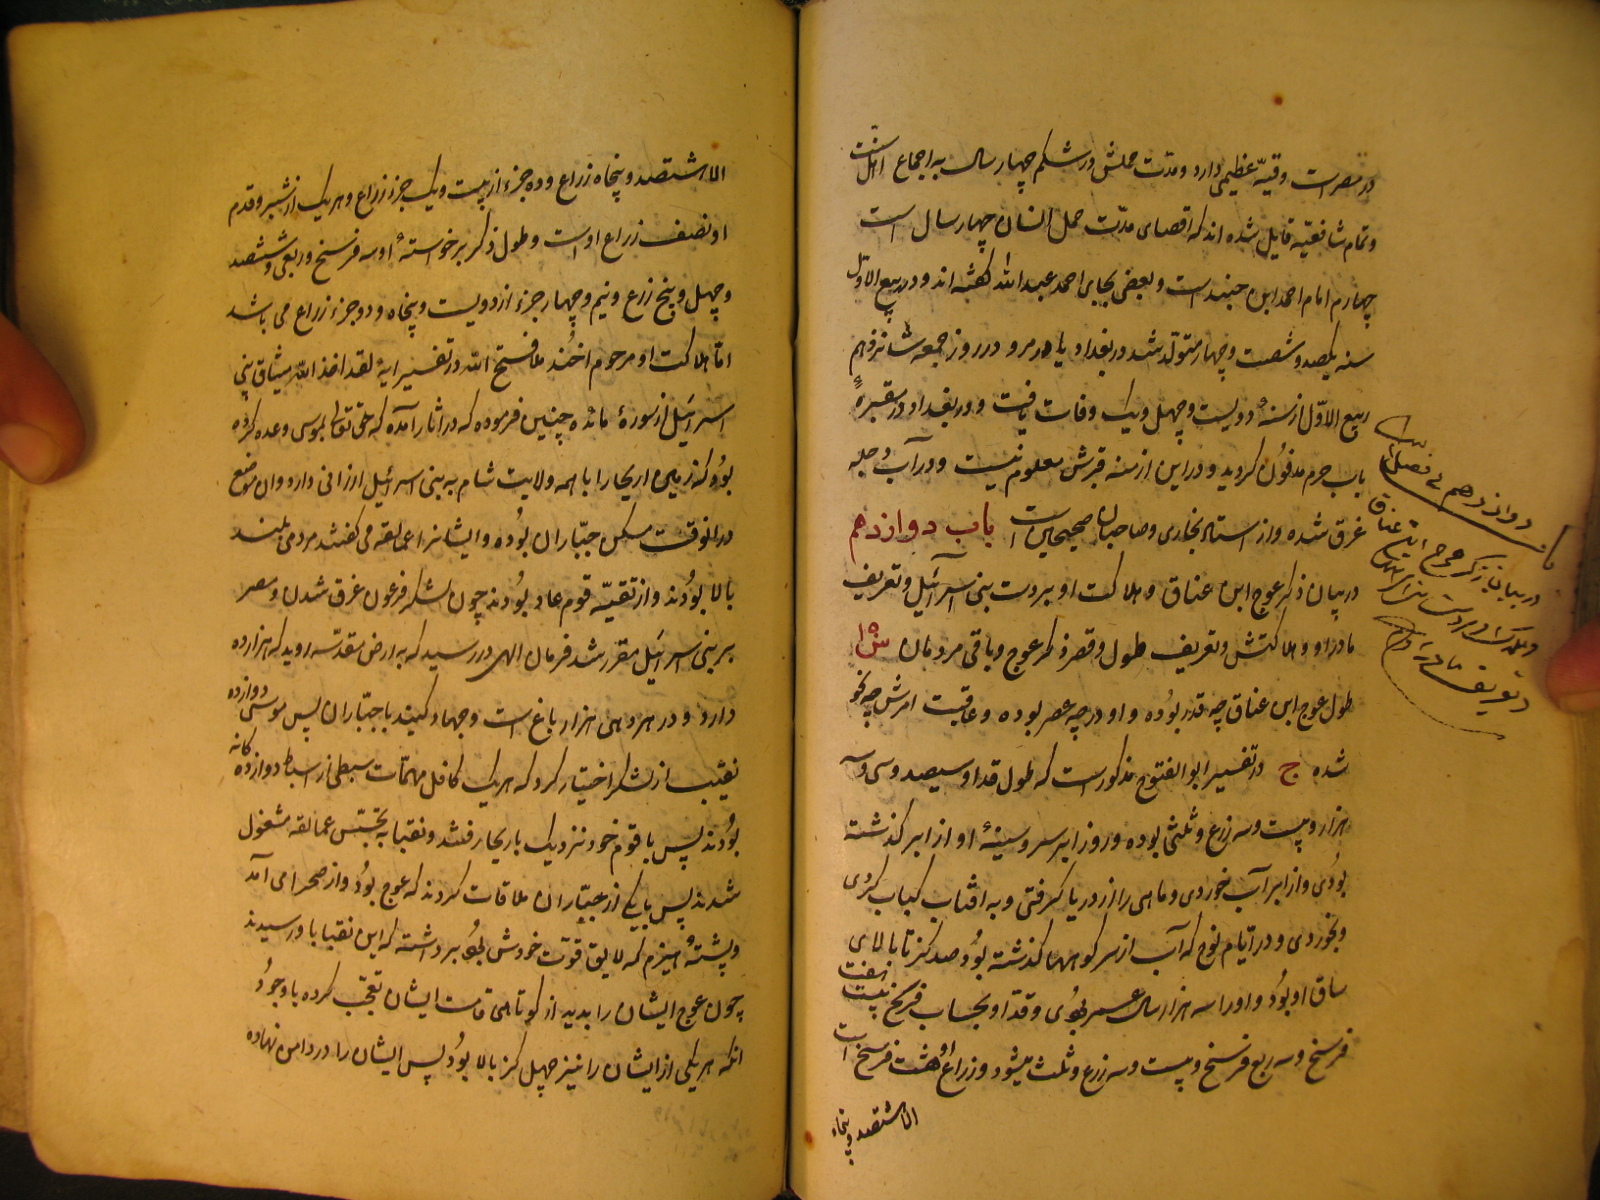 در مصر است وقبّه عظیمی دارد ومدّت حملش در شکم چهار سال به اجماع اهل سنّت
وتمام شافعیّه قایل شده اند که اقصای مدّت حمل انسان چهار سال است
چهارم امام احمد ابن حنبل است وبعضی بجای احمد عبد الله گفته اند ودر ربیع الاوّل
سنه یکصد وشصت وچهار متولّد شد در بغداد یا در مرو ودر روز جمعه شانزدهم
ربیع الاوّل از سنهٔ دویست وچهل ویک وفات یافت ودر بغداد در مقبرهٔ
باب حرم مدفون کردید ودر این ازمنه قبرش معلوم نیست ودر آب دجله
غرق شده واز استاد بخاری وصاحبان صحیحین است باب دوازدهم
در بیان ذکر عوج ابن عناق وهلاکت او بردست بنی اسرائیل وتعریف
مادر او وهلاکتش وتعریف طول وقصر ذکر عوج وباقی مردمان س ۱۵
طول عوج ابن عناق چه قدر بوده و او در چه عصر بوده وعاقبت امرش چه نحو
شده ج در تفسیر ابو الفتوح مذکور است که طول قد او سیصد وسی وسه
هزار وبیست وسه زرع وثلثی بوده وروز ابر سر وسینهٔ او از ابر کذشته
بودی واز ابر آب خوردی وماهی را از دریا کرفتی وبه افتاب کباب کردی
وبخوردی ودر ایّام نوح که آب از سر کوهها کذشته بود صد کز تا بالای
ساق او بود واو را سه هزار سال عمر بودی وقد او بحساب فرسخ بیست وهفت
فرسخ وسه ربع فرسخ وبیست وسه زرع وثلث میشود وزراع او هشت فرسخ است
الا ششصد وپنجاه
دوازدهم
در بیان ذکر عوج ابن عناق
وهلاکت او بردست بنی اسرائیل
وتعریف مادر او
الا ششصد وپنجاه زراع وده جزء از بیست ویک جزء زراع وهر یک از شبر وقدم
او نصف زراع او است وطول ذکر برخواستهٔ او سه فرسخ وربعی وششصد
وچهل وپنج زرع ونیم وچهار جزء از دویست وپنجاه ودو جزء زراع می باشد
امّا هلاکت او مرحوم اخُند ملا فتح الله در تفسیر ایهٔ لقد اخذ الله میثاق بنی
اسرائیل از سورهٔ مائده چنین فرموده که در اثار آمده که حق تعالی بموسی وعده کرده
بود که زمین اریحا را با همه ولایت شام به بنی اسرائیل ارزانی دارد وان موضع
در انوقت مسکن جبّاران بوده وایشانرا عمالقه می کفتند مردمی بلند
بالا بودند واز تقیّه قوم عاد بودند چون لشکر فرعون غرق شدن ومصر
بر بنی اسرائیل مقرّر شد فرمان الهی در رسید که به ارض مقدّسه روید که هزار ده
دارد ودر هر دهی هزار باغ است وجهاد کنید با جبّاران پس موسی دوازده
نقیب از لشکر اختیار کرد که هر یک کافل مهمّات سبطی از اسباط دوازده کانه
بودند پس با قوم خود نزدیک باریحا رفتند ونقبا به تجسّس عمالقه مشغول
شدند پس با یکی از جبّاران ملاقات کردند که عوج بود واز صحرا می آمد
وپشتهٔ هیزم که لایق قوّت خودش بود برداشته که این نقبا با او رسیدند
چون عوج ایشان را بدید از کوتاهی قامت ایشان تعجّب کرده با وجود
انکه هر یکی از ایشان را نیز چهل کز بالا بود پس ایشان را در دامن نهاده